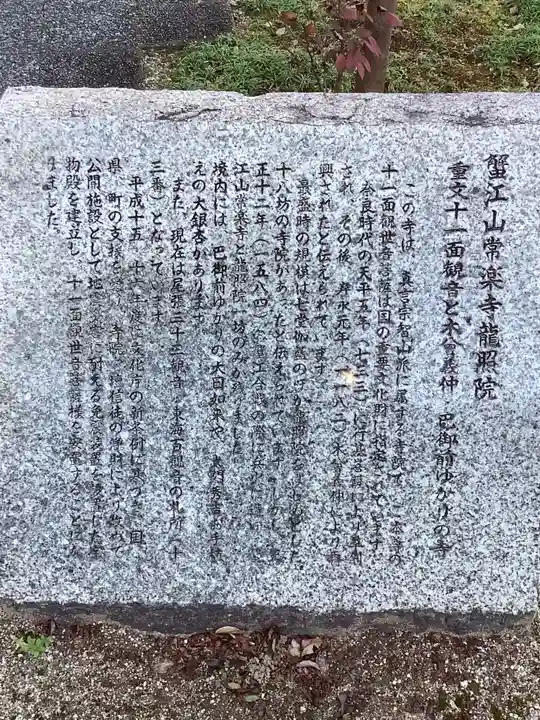 蟹江山常楽寺龍照院
重文十一面観音と木曽義仲 巴御前ゆかりの寺
この寺は、真言宗智山派に属する寺院で、ご本尊の
十一面観世音菩薩は国の重要文化財に指定されています
奈良時代の天平五年(七三三)に行基菩薩により
され、その後、寿永元年(一一八二)木曽義仲により再
興されたと伝えられています。
最盛時の規模は七堂伽藍のほか龍照院をはじめとした
十八坊の寺院があったと伝えられています しかし、天
正十二年(一五八四)蟹江合戦の際に
江山常楽寺と龍照院一坊のみが
境内には、巴御前ゆかりの大日如来や、
えの大銀杏があります。
また、現在は尾張三十三観音 東海百観音の札所(十
三番)となっています。
平成十五、十六年度に文化庁の
県、町の支援を 寺院 檀信徒の浄財により
公開施設として地震 耐える免震装置を
物殿を建立し、十一面観世音菩薩様を安置することにな
りました。